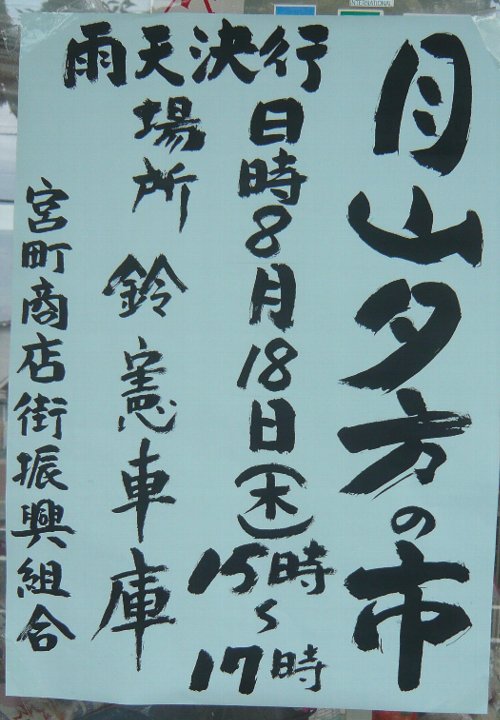 月山夕方の市
雨天決行
日時8月18日(木)
15時
〜
17時
場所 鈴憲車庫
宮町商店街振興組合
INTERNATIONAL